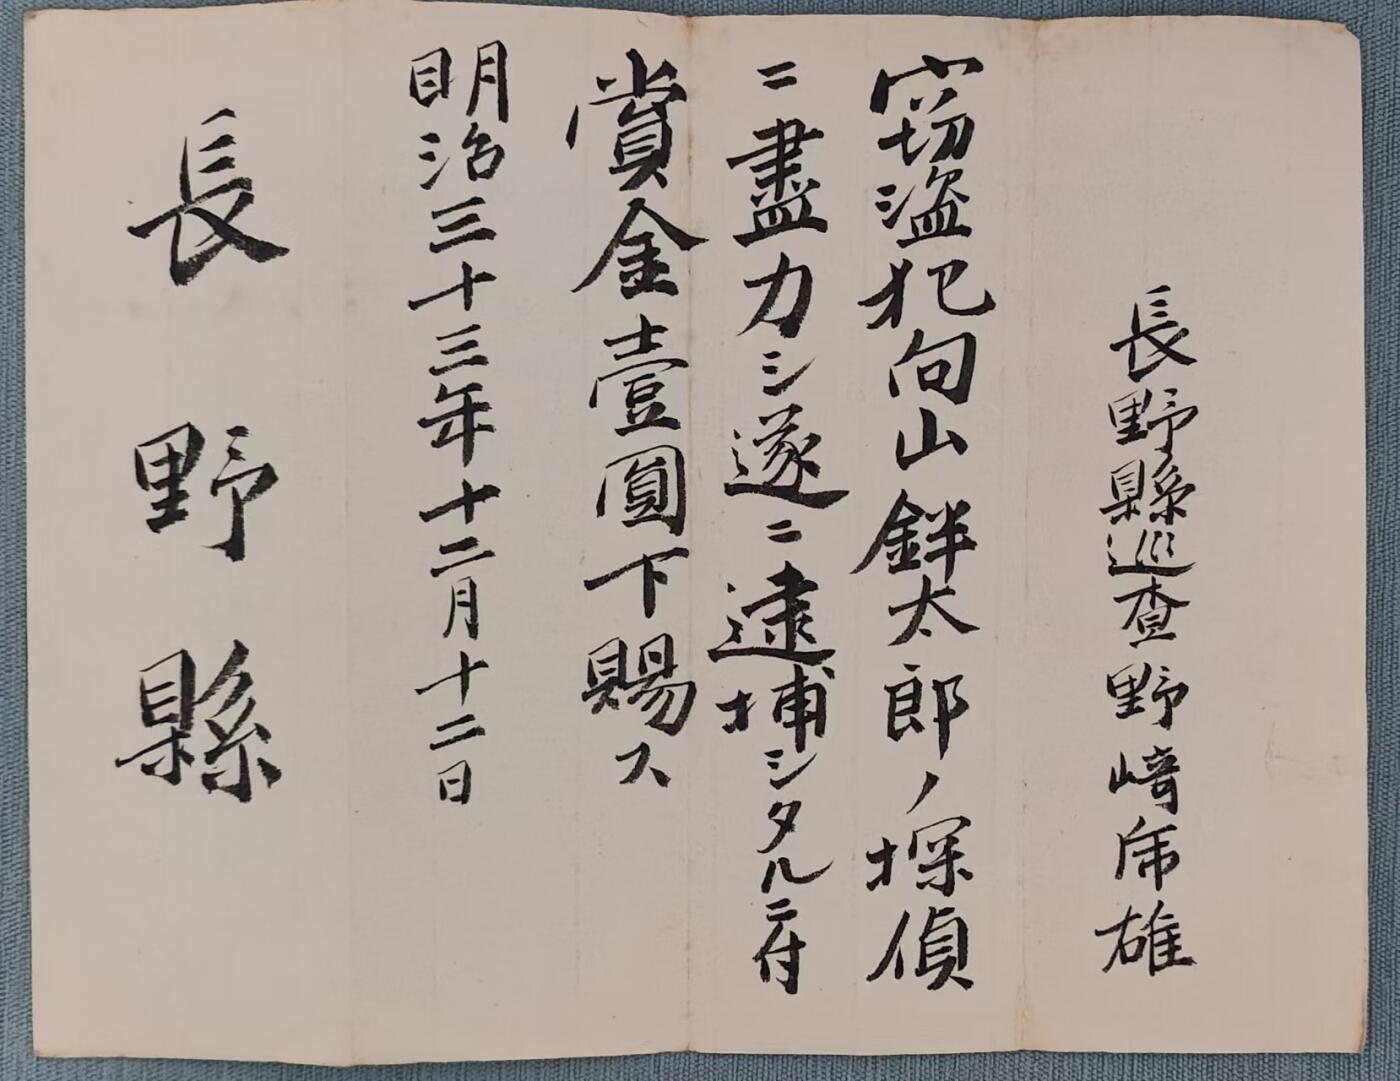 長野縣巡査野﨑乕雄
窃盗犯向山鉡太郎ノ探偵
ニ盡力シ遂ニ逮捕シタルニ付
賞金壹圓下賜ス
明治三十三年十二月十二日
長野縣